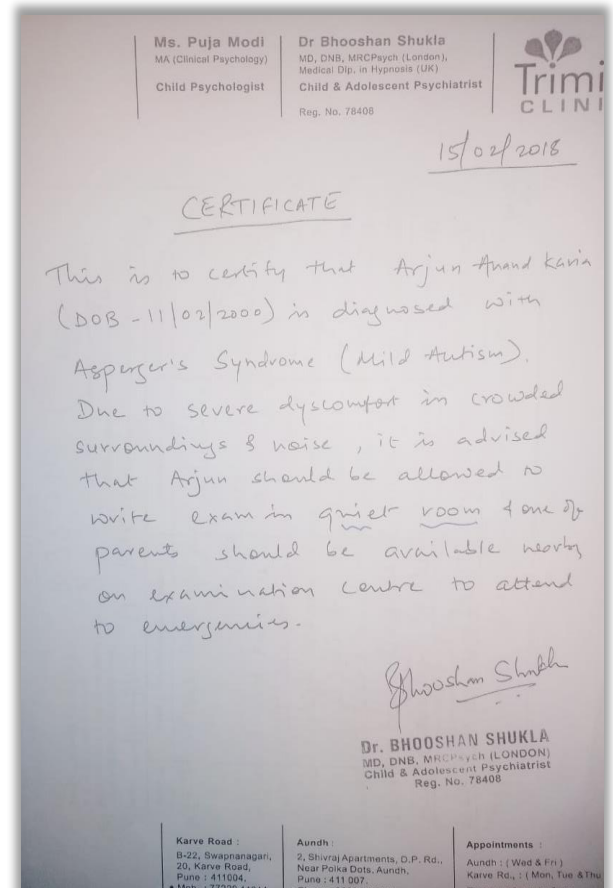 Ms. Puja Modi
MA (Clinical Psychology)
Child Psychologist
Dr Bhooshan Shukla
MD, DNB, MRCPsych (London),
Medical Dip. in Hypnosis (UK)
Child & Adolescent Psychiatrist
Reg. No. 78408
Trimi
CLINI
15/02/2018
CERTIFICATE
This is to certify that Arjun Anand Karia
(DOB - 11/02/2000) is diagnosed with
Asperger's Syndrome (Mild Autism).
Due to severe dyscomfort in crowded
surroundings & noise, it is advised
that Arjun should be allowed to
write exam in quiet room & one of
parents should be available nearby
on examination centre to attend
to emergencies.
Bhooshan Shukla
Dr. BHOOSHAN SHUKLA
MD, DNB, MRCPsych (LONDON)
Child & Adolescent Psychiatrist
Reg. No. 78408
Karve Road :
B-22, Swapnanagari,
20, Karve Road,
Pune : 411004.
Aundh :
2, Shivraj Apartments, D.P. Rd.,
Near Polka Dots, Aundh,
Pune : 411 007.
Appointments :
Aundh : ( Wed & Fri )
Karve Rd., : ( Mon, Tue & Thu